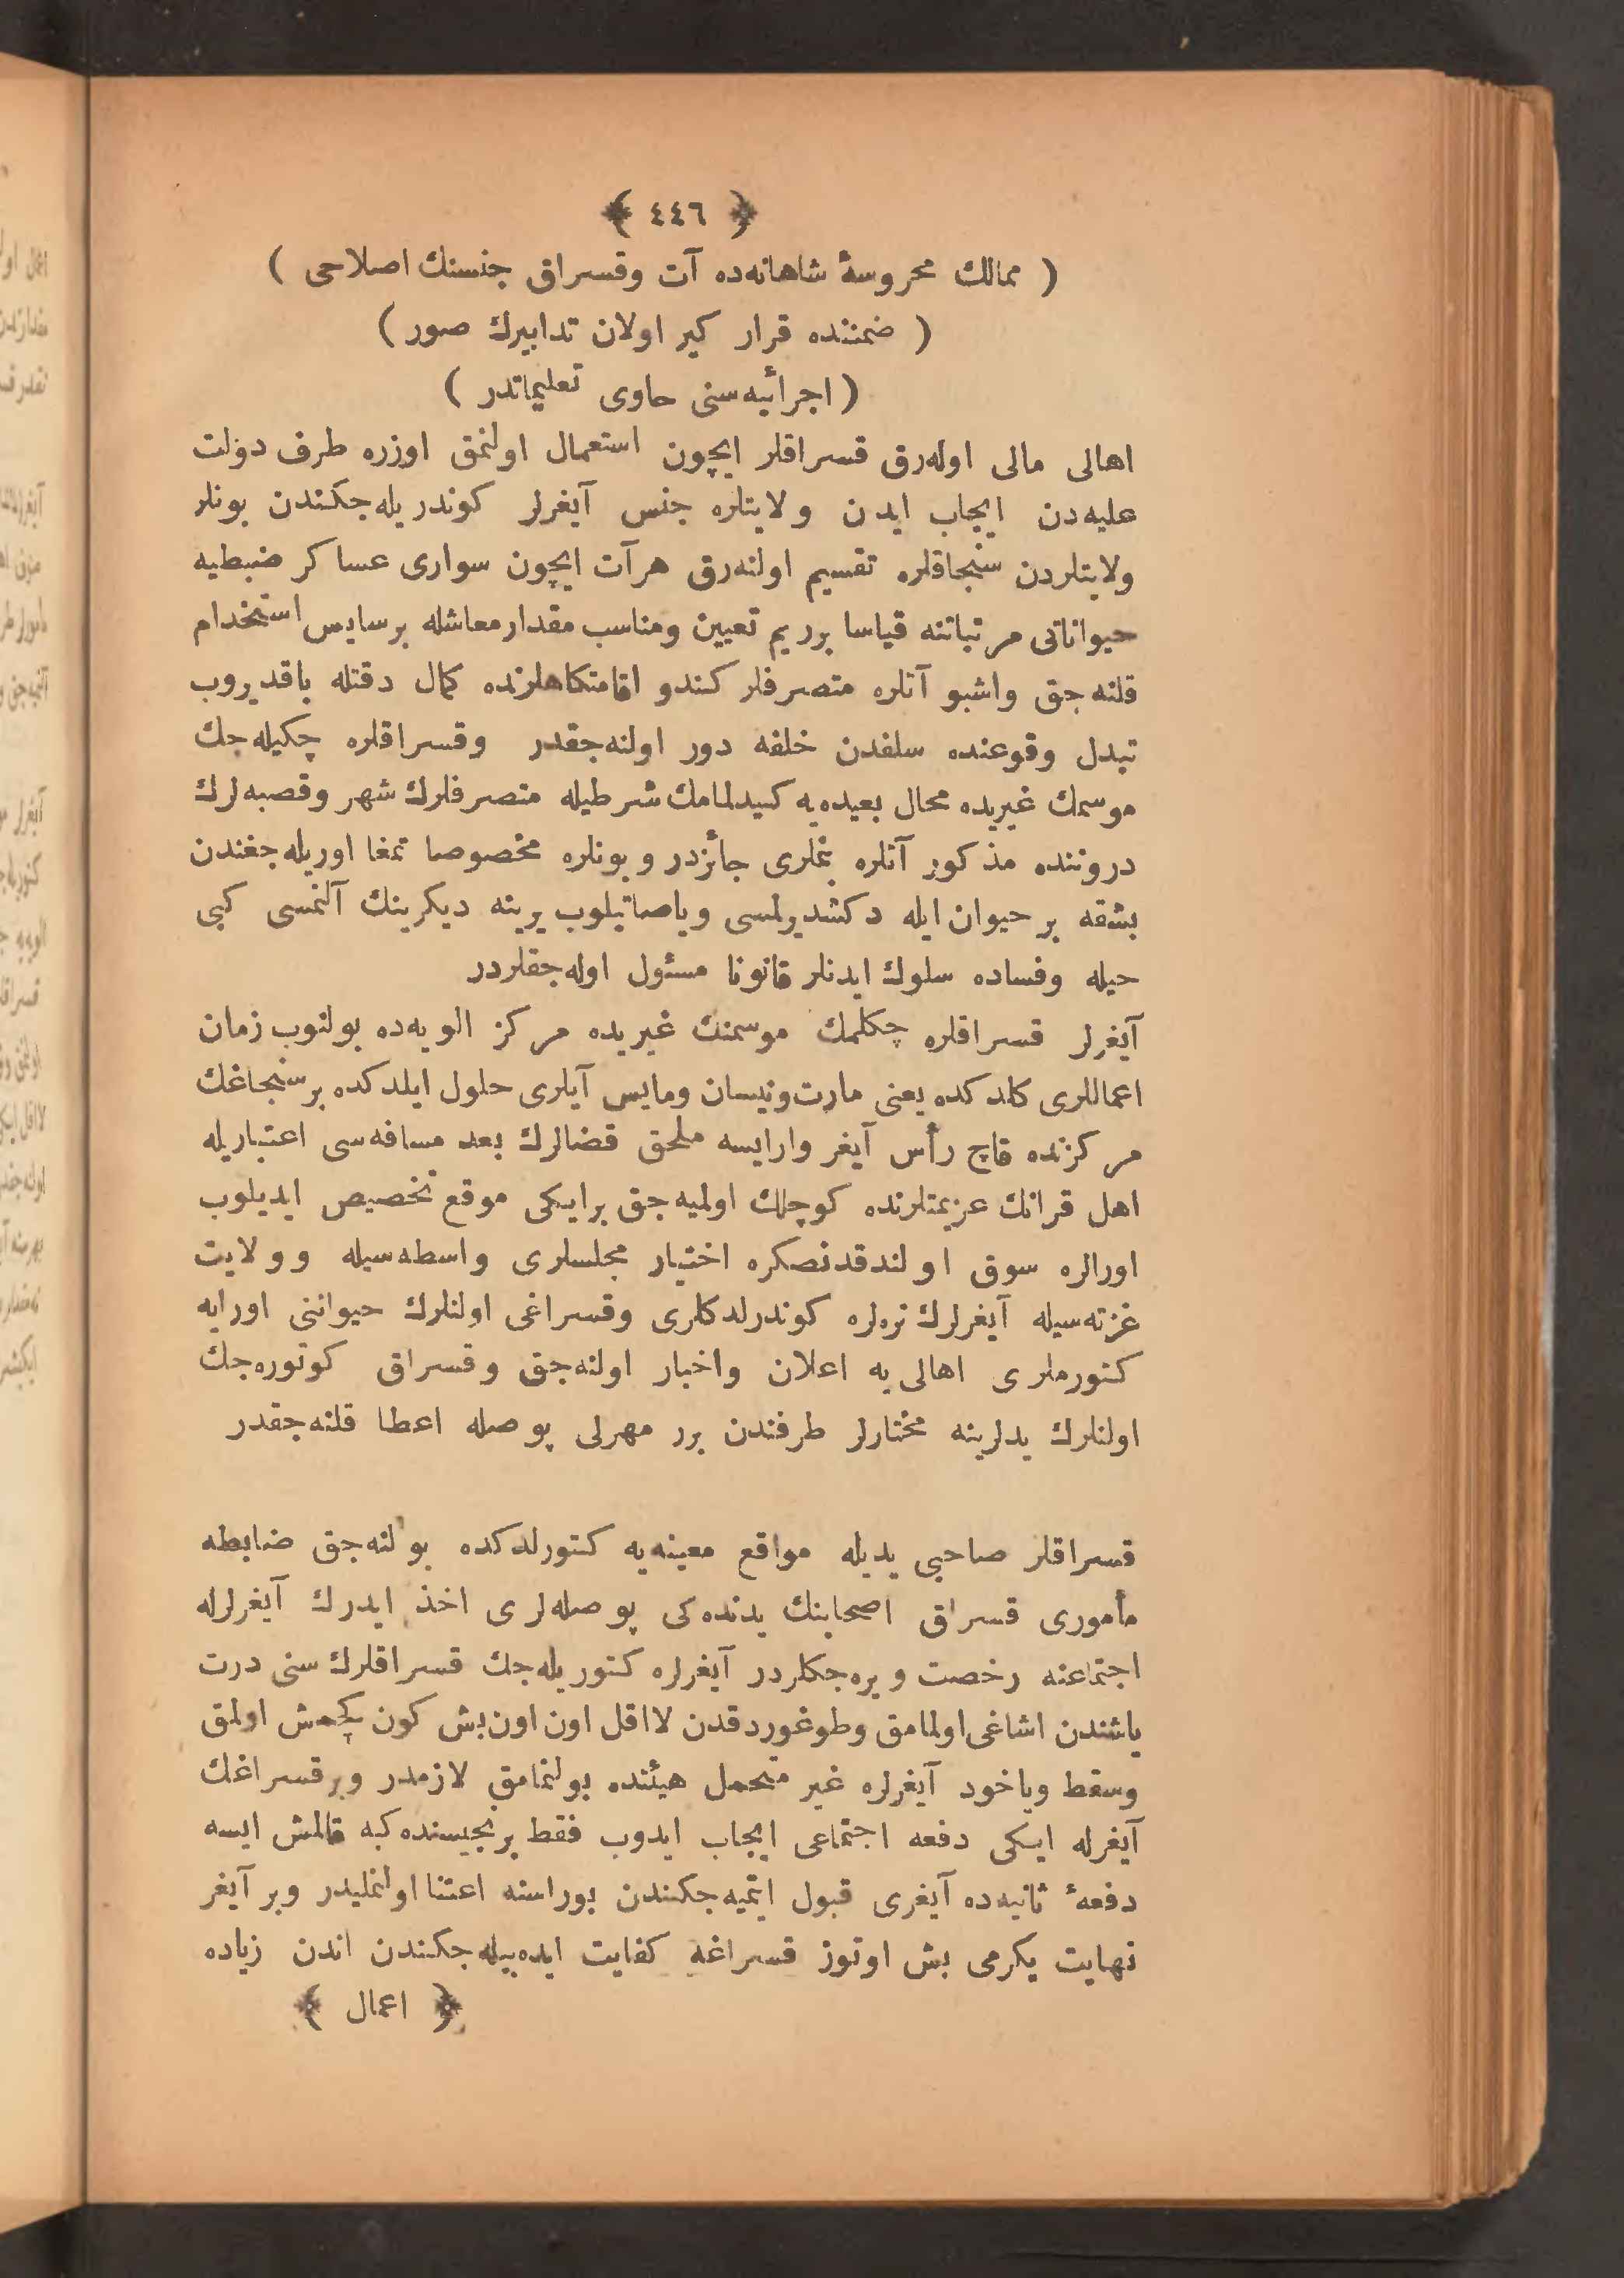 ﴿ ٤٤٦ ﴾
( ممالك محروسهٔ شاهانه‌ده آت وقسراق جنسنك اصلاحی )
( ضمننده قرار كیر اولان تدابیرك صور )
( اجرائیه‌سنی حاوی تعلیماتدر )
اهالی مالی اوله‌رق قسراقلر ایچون استعمال اولنمق اوزره طرف دولت
علیه‌دن ایجاب ایدن ولایتلره جنس آیغرلر كوندریله‌جكندن بونلر
ولایتلردن سنجاقلره تقسیم اولنه‌رق هر آت ایچون سواری عساكر ضبطیه
حیواناتی مرتباتنه قیاسا برر یم تعیین ومناسب مقدار معاشله بر سایس استخدام
قلنه‌جق واشبو آتلره متصرفلر كندو اقامتكاهلرنده كمال دقتله باقدیروب
تبدل وقوعنده سلفدن خلفه دور اولنه‌جقدر وقسراقلره چكیله‌جك
موسمك غیریده محال بعیده‌یه كیدلمامك شرطیله متصرفلرك شهر وقصبه‌لرك
دروننده مذكور آتلره بنملری جائزدر وبونلره مخصوصا تمغا اوریله‌جغندن
بشقه بر حیوان ایله دكشدیرلمسی ویاصاتیلوب یرینه دیكرینك آلنمسی كبی
حیله وفساده سلوك ایدنلر قانونا مسئول اوله‌جقلردر
آیغرلر قسراقلره چكلمك موسمنك غیریده مركز الویه‌ده بولنوب زمان
اعماللری كلدكده یعنی مارت ونیسان ومایس آیلری حلول ایلدكده بر سنجاغك
مركزنده قاچ رأس آیغر وارایسه ملحق قضالرك بعد مسافه‌سی اعتباریله
اهل قرانك عزیمتلرنده كوچلك اولمیه‌جق بر ایكی موقع تخصیص ایدیلوب
اورالره سوق اولندقدنصكره اختیار مجلسلری واسطه‌سیله وولایت
غزته‌سیله آیغرلرك نره‌لره كوندرلدكلری وقسراغی اولنلرك حیواننی اورایه
كتورملری اهالی‌یه اعلان واخبار اولنه‌جق وقسراق كوتوره‌جك
اولنلرك یدلرینه مختارلر طرفندن برر مهرلی پوصله اعطا قلنه‌جقدر
قسراقلر صاحبی یدیله مواقع معینه‌یه كتورلدكده بولنه‌جق ضابطه
مأموری قسراق اصحابنك یدنده‌كی پوصله‌لری اخذ ایدرك آیغرلرله
اجتماعنه رخصت ویره‌جكلردر آیغرلره كتوریله‌جك قسراقلرك سنی درت
یاشندن اشاغی اولمامق وطوغوردقدن لااقل اون اون بش كون كچمش اولمق
وسقط ویاخود آیغرلره غیر متحمل هیئنده بولنمامق لازمدر وبر قسراغك
آیغرله ایكی دفعه اجتماعی ایجاب ایدوب فقط برنجیسنده كبه قالمش ایسه
دفعهٔ ثانیه‌ده آیغری قبول ایتمیه‌جكندن بوراسنه اعتنا اولنملیدر وبر آیغر
نهایت یكرمی بش اوتوز قسراغه كفایت ایده‌بیله‌جكندن اندن زیاده
﴿ اعمال ﴾